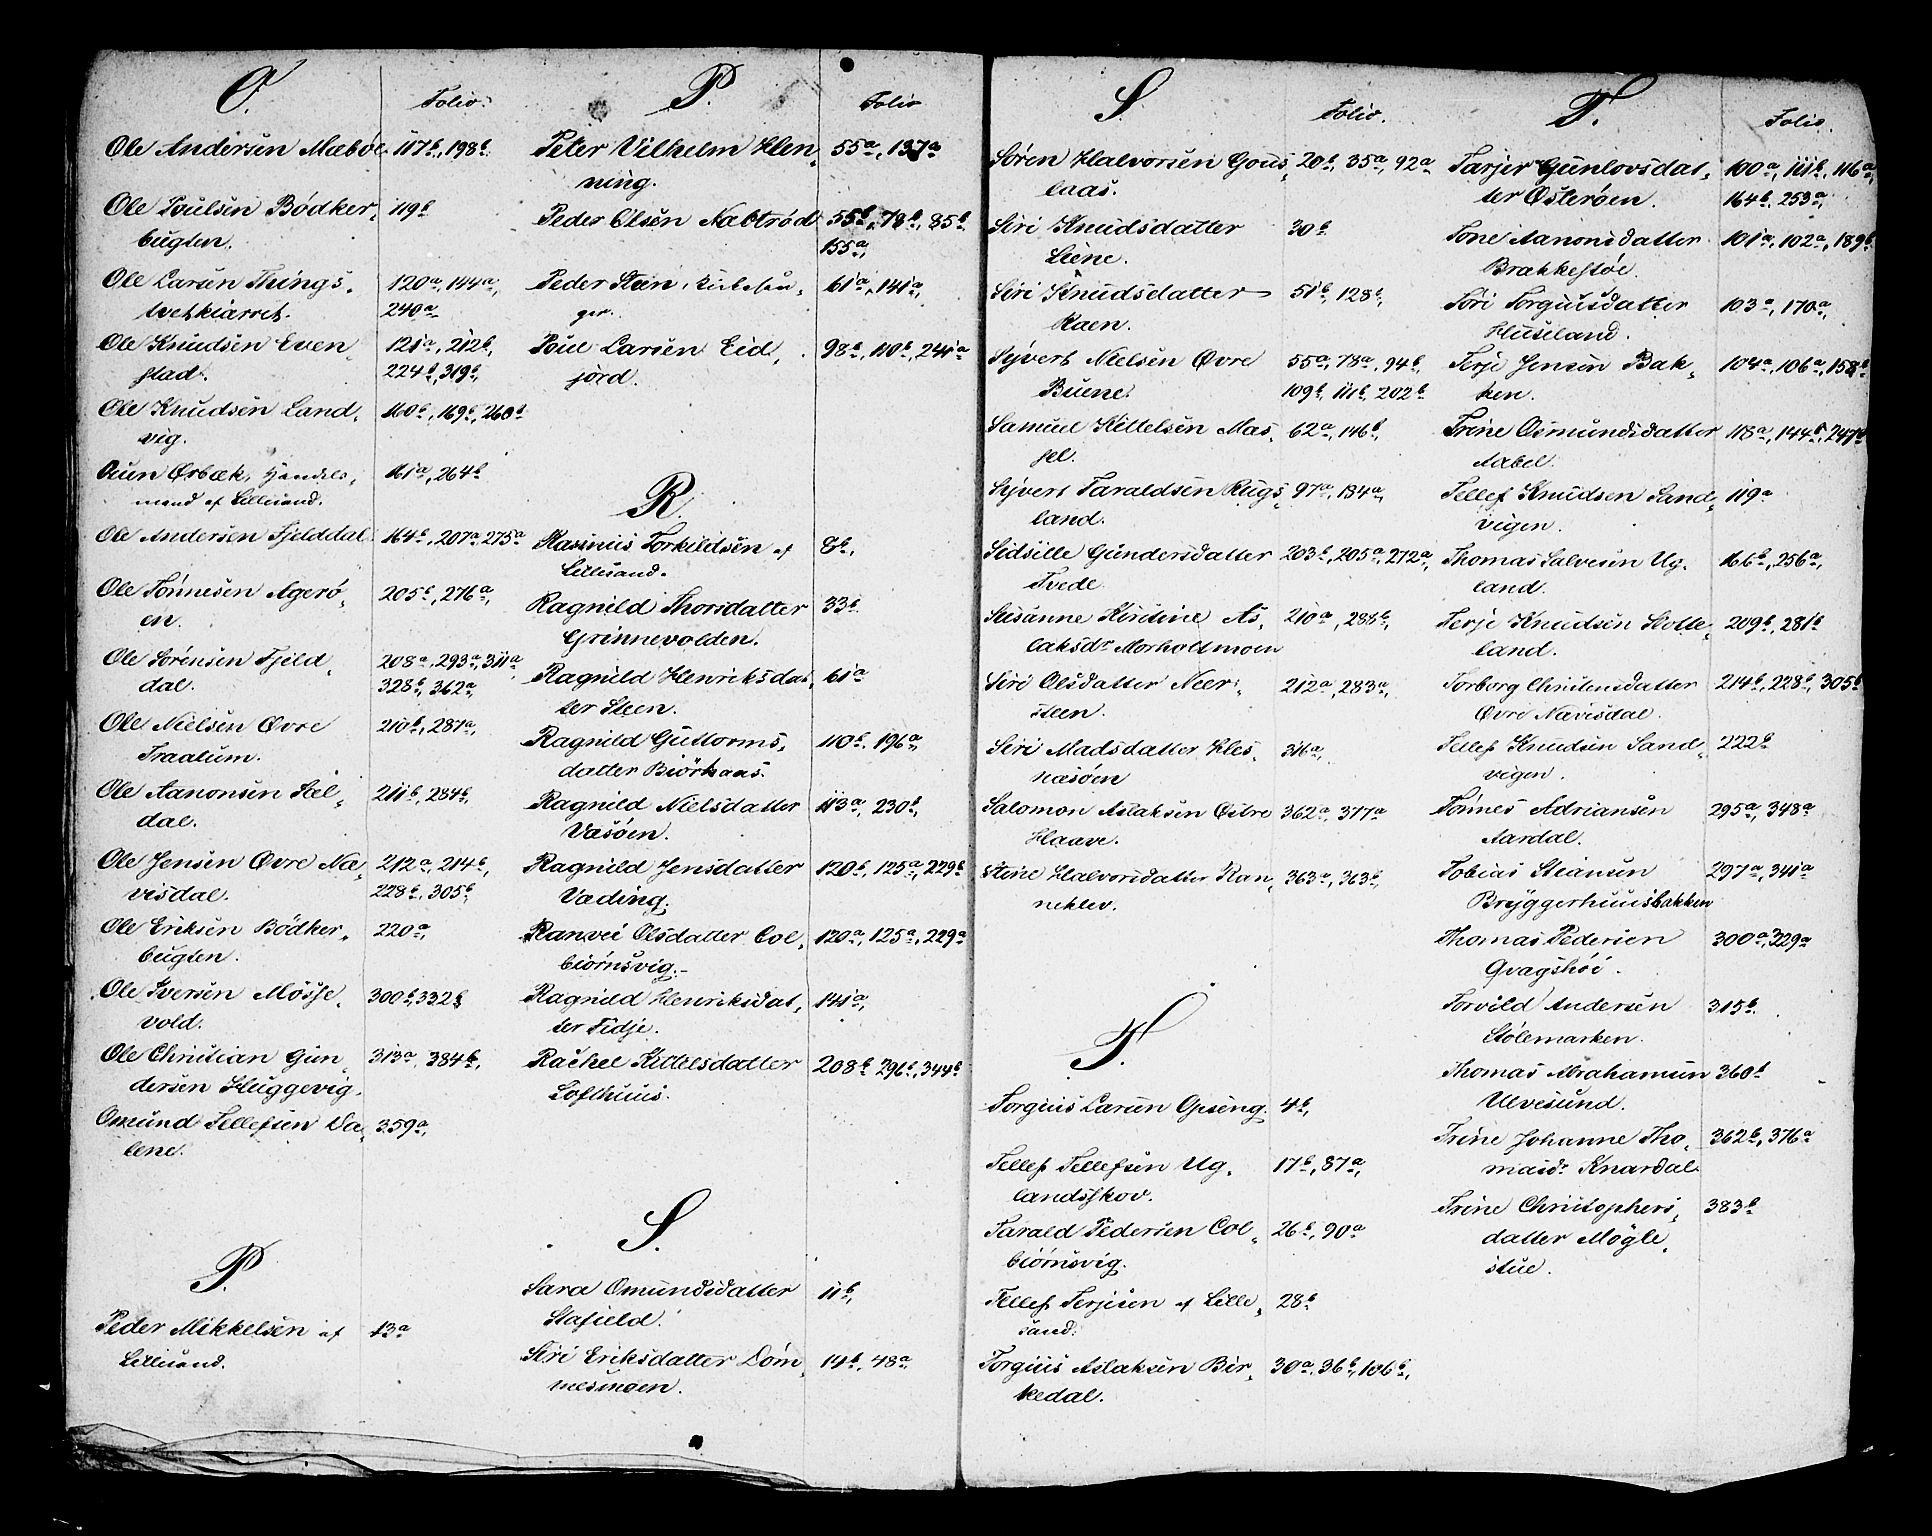 O. Folio.
Ole Andersen Mæbøe 117b, 198b
Ole Poulsen Bødker-
bugten. 119b
Ole Larsen Things-
tvetkiærret. 120a, 144a,
240a
Ole Knudsen Even-
stad. 121a, 212b,
224b, 319b,
Ole Knudsen Land-
vig. 160b, 169b, 260b
Ørbæk, Handels-
mand af Lillesand. 161a, 264b
Ole Andersen Fjelddal. 164b, 207a, 275a
Ole Tønnesen Agerø-
en. 205b, 276a,
Ole Sørensen Fjeld-
dal. 208a, 293a, 311a,
328b, 362a,
Ole Nielsen Øvre
Traalum. 210b, 287a,
Ole Aanonsen Sæl-
dal. 211b, 284b,
Ole Jensen Øvre Næ-
visdal. 212a, 214b,
228b, 305b
Ole Eriksen Bødker-
bugten. 220a,
Ole Iversen Møsse-
vold. 300b, 332b
Ole Christian Gun-
dersen Huggevig. 313a, 384b,
Omund Tellefsen Da-
lene. 359a,
P.
Peder Mikkelsen af
Lillesand. 13a
P. Folio
Peter Vilhelm Hen-
ning. 55a, 137a
Peder Olsen Næbtrød 55b, 78b, 85b
155a,
Peder Steen,
61a, 141a,
Poul Larsen Eid-
jord. 98b, 110b, 241a
R.
Rasmus Torkildsen af
Lillesand. 8b,
Ragnild Thorsdatter
Grinnevolden. 33b
Ragnild Henriksdat-
ter Steen. 61a
Ragnild Guttorms-
datter Biørkaas. 110b, 196a,
Ragnild Nielsdatter
Vasøen. 113a, 230b,
Ragnild Jensdatter
Væding. 120b, 125a, 229b
Ranvei Olsdatter Col-
biørnsvig. 120a, 125a, 229a
Ragnild Henriksdat-
ter Tidje. 141a,
Rachel Kittelsdatter
Lofthuus. 208b, 296b, 344b
S.
Sara Omundsdatter
Stafield. 11b,
Siri Eriksdatter Døm-
mesmoen. 14b, 48a,
S. Folio.
Søren Halvorsen Gous-
laas. 20b, 35a, 92a
Siri Knudsdatter
Liene. 30b
Siri Knudsdatter
Raen. 51b, 128b,
Syvert Nielsen Øvre
Buene. 55a, 78a, 94b,
109b, 111b, 202b
Samuel Kittelsen Mas-
sel. 62a, 146b,
Syvert Taraldsen Rugs-
land. 97a, 134a,
Sidsille Gundersdatter
Tvede. 203b, 205a, 272a,
Susanne Kirstine As-
laksdr Morholtmoen 210a, 285b,
Siri Olsdatter Neer-
steen. 212a, 283a,
Siri Madsdatter Hes-
næsøen 316a,
Salomon Aslaksen Østre
Haave. 362a, 377a
Stine Halvorsdatter Ran-
neklev. 363a, 363b,
T.
Torgius Larsen Opseng. 4b,
Tellef Tellefsen Ug-
landsskov. 17b, 87a,
Tarald Pedersen Col-
biørnsvig. 26b, 90a
Tellef Terjesen af Lille-
sand. 28b
Torgius Aslaksen Bir-
kedal. 30a, 36b, 106b,
T. Folio.
Tarjer Gunlovsdat-
ter Østerøen. 100a, 111b, 116a,
164b, 253a,
Tone Aanonsdatter
Brækkestøe. 101a, 102a, 189b
Tori Torgiusdatter
Huseland. 103a, 170a,
Terje Jensen Bak-
ken. 104a, 106a, 158b
Trine Osmundsdatter
Aabel. 118a, 144b, 247b
Tellef Knudsen Sand-
vigen. 119a
Thomas Salvesen Ug-
land. 166b, 256a,
Terje Knudsen Kolle-
land. 209b, 281b
Torborg Christensdatter
Øvre Nævisdal. 214b, 228b, 305b
Tellef Knudsen Sand-
vigen. 222b
Tønnes Adriansen
Aardal. 295a, 348a
Tobias Stiansen
Bryggerhuusbakken 297a, 341a
Thomas Pedersen
Qvagshøi. 300a, 329a
Torvild Andersen
Stølemarken. 315b.
Thomas Abrahamsen
Ulvesund. 360b
Trine Johanne Tho-
masdr Knardal. 362b, 376a
Trine Christophers-
datter Møgle-
stue. 383b